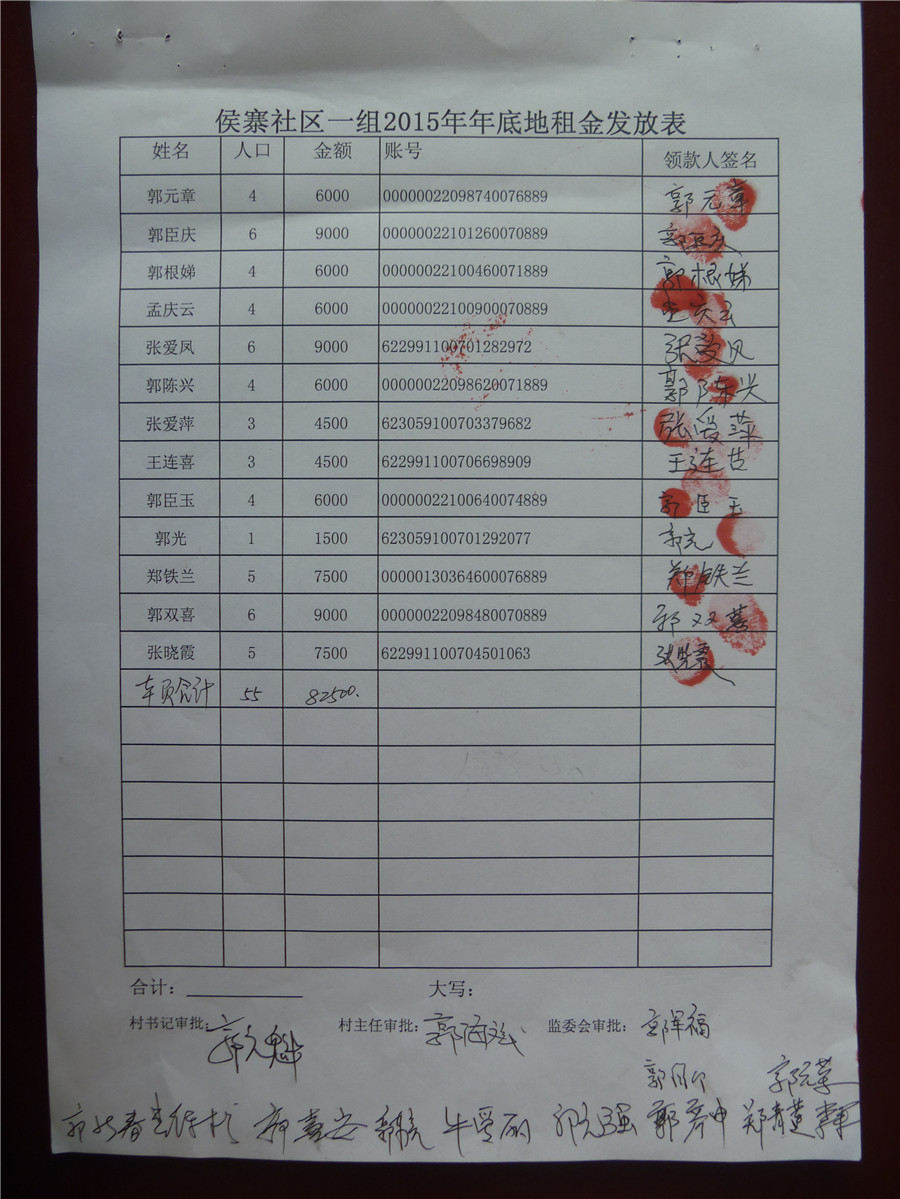 侯寨社区一组2015年年底地租金发放表
姓名 人口 金额 账号 领款人签名
郭元章 4 6000 00000022098740076889 郭元章
郭臣庆 6 9000 00000022101260070889 郭臣庆
郭根娣 4 6000 00000022100460071889 郭根娣
孟庆云 4 6000 00000022100900070889 孟庆云
张爱凤 6 9000 622991100701282972 张爱凤
郭陈兴 4 6000 00000022098620071889 郭陈兴
张爱萍 3 4500 623059100703379682 张爱萍
王连喜 3 4500 622991100706698909 王连喜
郭臣玉 4 6000 00000022100640074889 郭臣玉
郭光 1 1500 623059100701292077 郭光
郑铁兰 5 7500 00000130364600076889 郑铁兰
郭双喜 6 9000 00000022098480070889 郭双喜
张晓霞 5 7500 622991100704501063 张晓霞
本页合计 55 82500.
合计： 大写：
村书记审批： 郭元魁 村主任审批： 郭海斌 监委会审批：
牛爱丽 郭元强